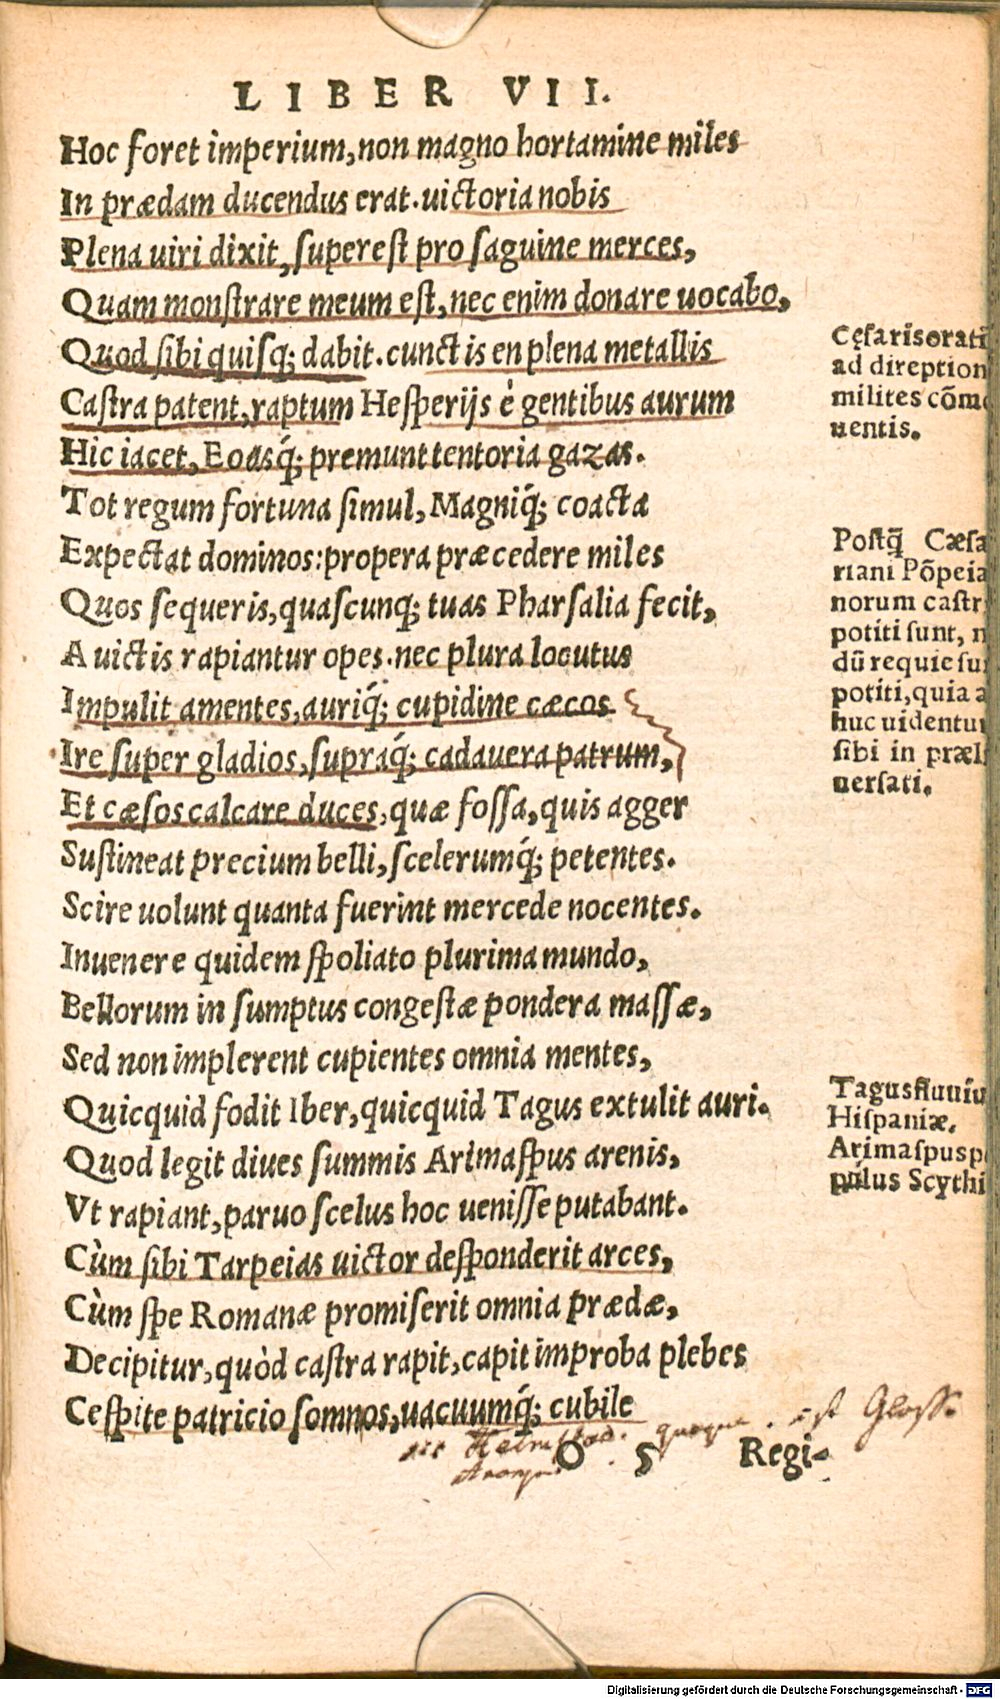 LIBER VII.
Hoc foret imperium, non magno hortamine miles
In prædam ducendus erat. uictoria nobis
Plena uiri dixit, superest pro saguine merces,
Quam monstrare meum est, nec enim donare uocabo,
Quod sibi quisq; dabit. cunctis en plena metallis
Castra patent, raptum Hesperijs è gentibus aurum
Hic iacet, Eoasq́; premunt tentoria gazas.
Tot regum fortuna simul, Magniq́; coacta
Expectat dominos: propera præcedere miles
Quos sequeris, quascunq; tuas Pharsalia fecit,
A uictis rapiantur opes. nec plura locutus
Impulit amentes, auriq́; cupidine cæcos
Ire super gladios, supraq́; cadauera patrum,
Et cæsos calcare duces, quæ fossa, quis agger
Sustineat precium belli, scelerumq́; petentes.
Scire uolunt quanta fuerint mercede nocentes.
Inuenere quidem spoliato plurima mundo,
Bellorum in sumptus congestæ pondera massæ,
Sed non implerent cupientes omnia mentes,
Quicquid fodit Iber, quicquid Tagus extulit auri.
Quod legit diues summis Arimaspus arenis,
Vt rapiant, paruo scelus hoc uenisse putabant.
Cùm sibi Tarpeias uictor desponderit arces,
Cùm spe Romanæ promiserit omnia prædæ,
Decipitur, quòd castra rapit, capit improba plebes
Cespite patricio somnos, uacuumq́; cubile
O 5 Regi-
quoque . est Gloss.
Cęsaris orati
ad direption
milites cõm
uentis.
Postq̃ Cæsa
riani Põpeia
norum castr
potiti sunt, n
dũ requie su
potiti, quia a
huc uidentu
sibi in præl
uersati.
Tagus fluuiu
Hispaniæ.
Arimaspus p
pulus Scythi
Digitalisierung gefördert durch die Deutsche Forschungsgemeinschaft - DFG